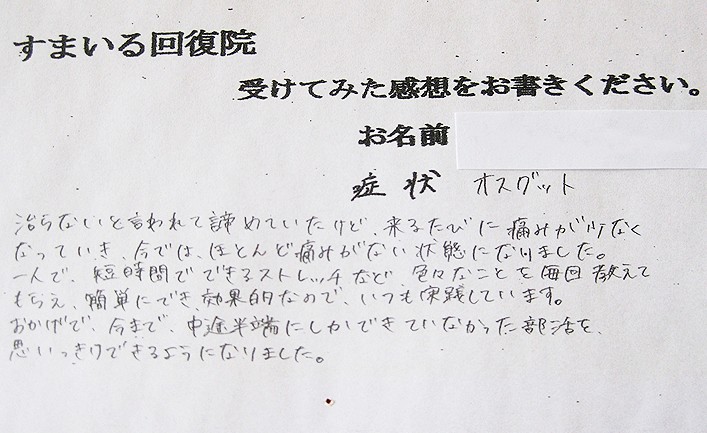 すまいる回復院
受けてみた感想をお書きください。
お名前
症状 オスグット
治らないと言われて諦めていたけど、来るたびに痛みが少なく
なっていき、今では、ほとんど痛みがない状態になりました。
一人で、短時間でできるストレッチなど、色々なことを毎回教えて
もらえ、簡単にでき、効果的なので、いつも実践しています。
おかげで、今まで、中途半端にしかできていなかった部活を、
思いっきりできるようになりました。